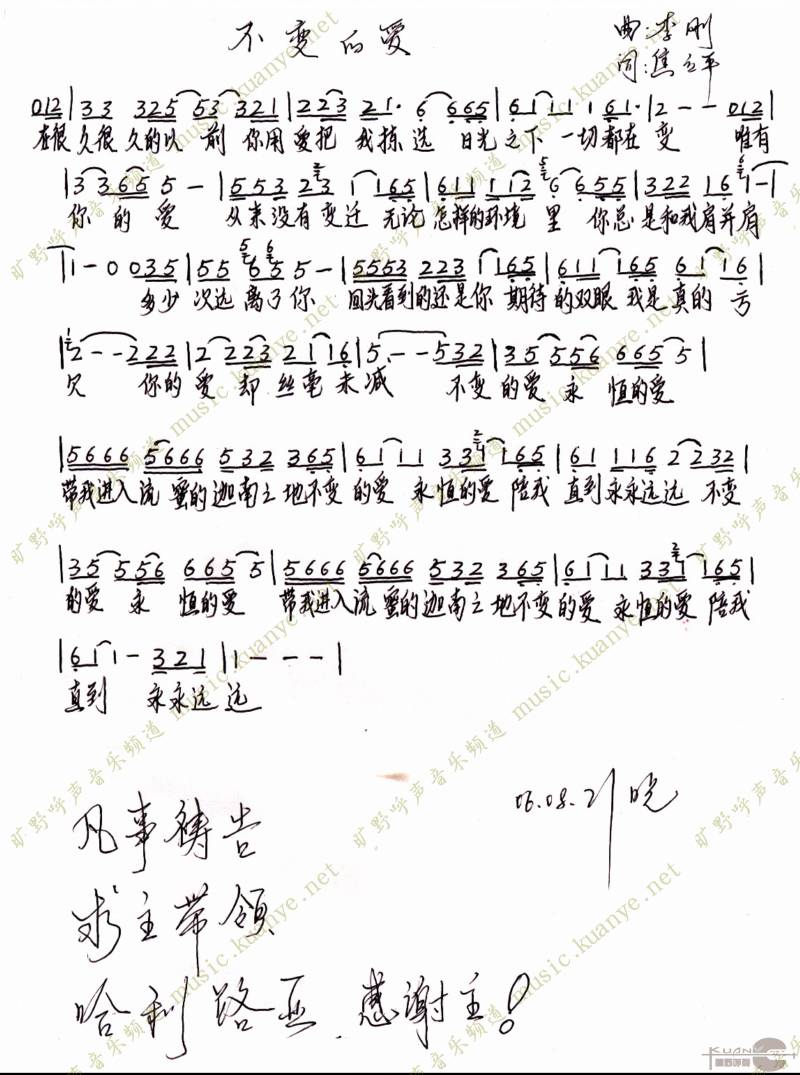 不变的爱
曲:李刚
词:焦立平
012|33 325 53 321|223 21· 6 665|61 11 1 61·|2 - - 012|
在很久很久的以前 你用爱把我拣选 日光之下 一切都在变 唯有
|33665 5 -|553 23 1 165|611 112 6 655|322 16 1-|
你的爱 从来没有变迁 无论怎样的环境里 你总是和我肩并肩
|1 - 0 035|55 655 5 -|5553 223 1 165|611 165 61 16|
多少次远离了你 回头看到的还是你 期待的双眼 我是真的亏
|2 - - 222|2 223 21 16|5 - - 532|35 556 665 5|
欠 你的爱却丝毫未减 不变的爱 永恒的爱
|5666 5666 532 365|61 11 331 165|61 116 2 232|
带我进入流蜜的迦南之地 不变的爱 永恒的爱 陪我直到永永远远 不变
|35 556 665 5|5666 5666 532 365|61 11 331 165|
的爱 永恒的爱 带我进入流蜜的迦南之地 不变的爱 永恒的爱 陪我
|61 1 - 321|1 - - -|
直到 永永远远
06.08.21 晓
凡事祷告
求主带领
哈利路亚.感谢主!
旷野呼声音乐频道 music.kuanye.net
KUAN
旷野呼声